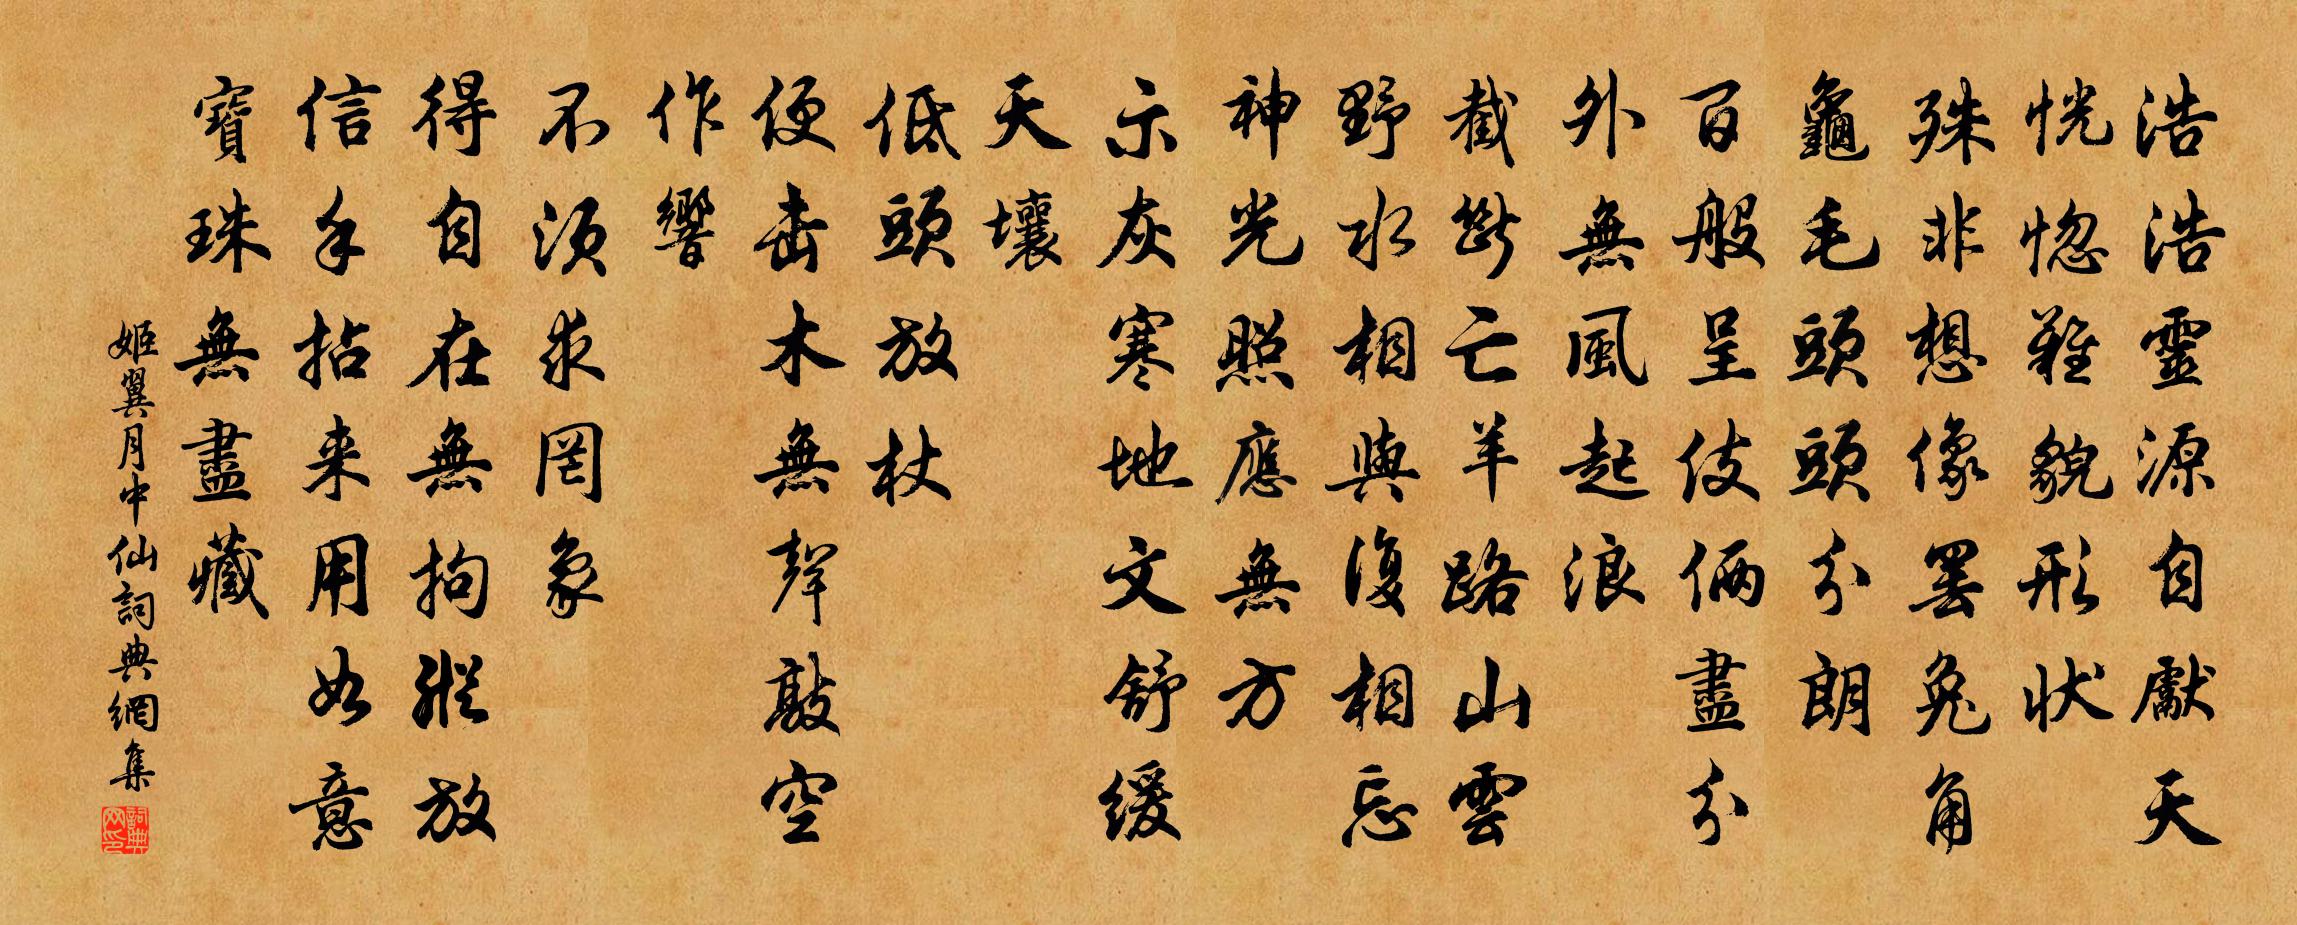 浩浩靈源自獻天
恍惚難貌形狀
殊非想像罢兔角
龜毛頭頭分朗
百般呈伎俩盡分
外無風起浪
截斷亡羊路山雲
野水相與復相忘
神光照應無方
示灰寒地文舒緩
天壤
低頭放杖
便击木無聲敲空
作響
不須求罔象
得自在無拘縱放
信手拈来用如意
寶珠無盡藏
姬翼月中仙詞典網集
詞典网印